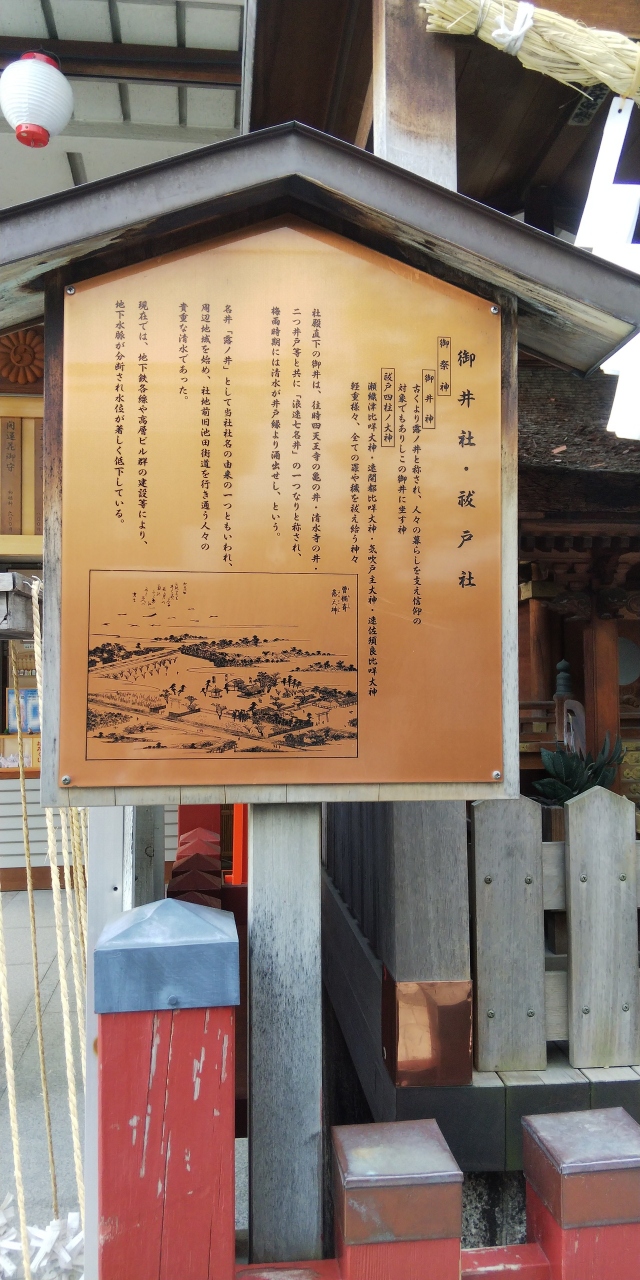 御井社・祓戸社
御祭神
御井神
古くより露ノ井と称され、人々の暮らしを支え信仰の
対象でもありしこの御井に坐す神
祓戸四柱ノ大神
瀬織津比咩大神・速開都比咩大神・気吹戸主大神・速佐須良比咩大神
軽重様々、全ての罪や穢を祓え給う神々
社殿直下の御井は、往時四天王寺の亀の井・清水寺の井・
二つ井戸等と共に「浪速七名井」の一つなりと称され、
梅雨時期には清水が井戸縁より涌出せし、という。
名井「露ノ井」として当社社名の由来の一つともいわれ、
周辺地域を始め、社地前旧池田街道を行き通う人々の
貴重な清水であった。
現在では、地下鉄各線や高層ビル群の建設等により、
地下水脈が分断され水位が著しく低下している。
曽根崎
露天神
開運花御守